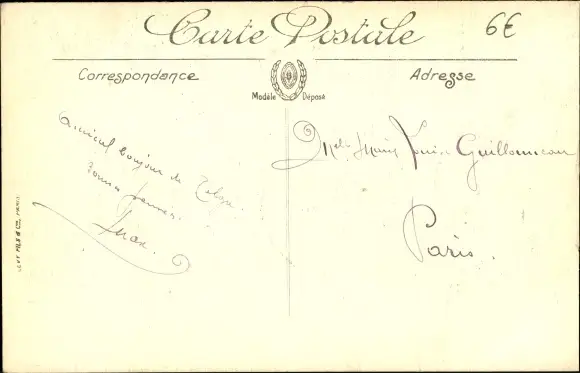 Carte Postale
6€
Correspondance
Adresse
Modèle Déposé
Amical bonjour de
Max.
Melle Marie Louise Guillonneau
Paris.
LEVY FILS & Cie, PARIS